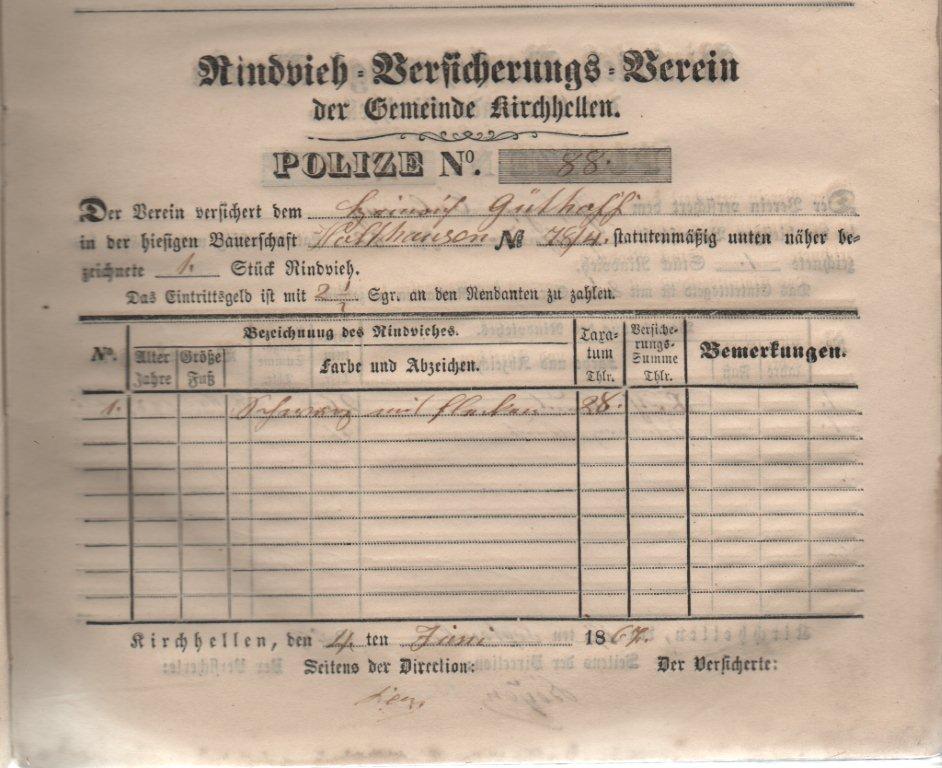 Rindvieh-Versicherungs-Verein
der Gemeinde Kirchhellen.
POLIZE No. 88.
Der Verein versichert dem Heinrich Güthoff
in der hiesigen Bauerschaft No statutenmäßig unten näher be-
zeichnete 1. Stück Rindvieh.
Das Eintrittsgeld ist mit 2 1/2 Sgr. an den Rendanten zu zahlen.
No. Bezeichnung des Rindviehes. Taxa-tum Thlr. Versiche-rungs-Summe Thlr. Bemerkungen.
Alter Jahre Größe Fuß Farbe und Abzeichen.
1. Schwarz mit flecken 28.
Kirchhellen, den 4 ten Juni 1867.
Seitens der Direction: Der Versicherte: